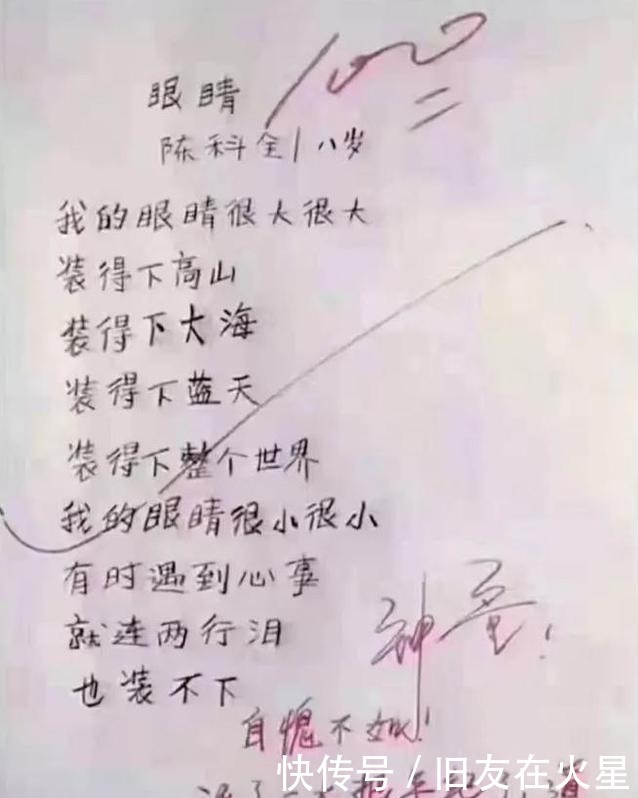 100
眼睛
陈科全 八岁
我的眼睛很大很大
装得下高山
装得下大海
装得下蓝天
装得下整个世界
我的眼睛很小很小
有时遇到心事
就连两行泪
也装不下
神童!
自愧不如!
快传号/旧友在火星